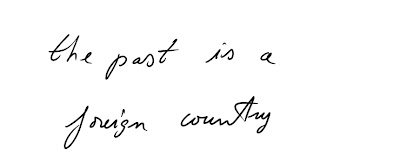 the past is a
foreign country